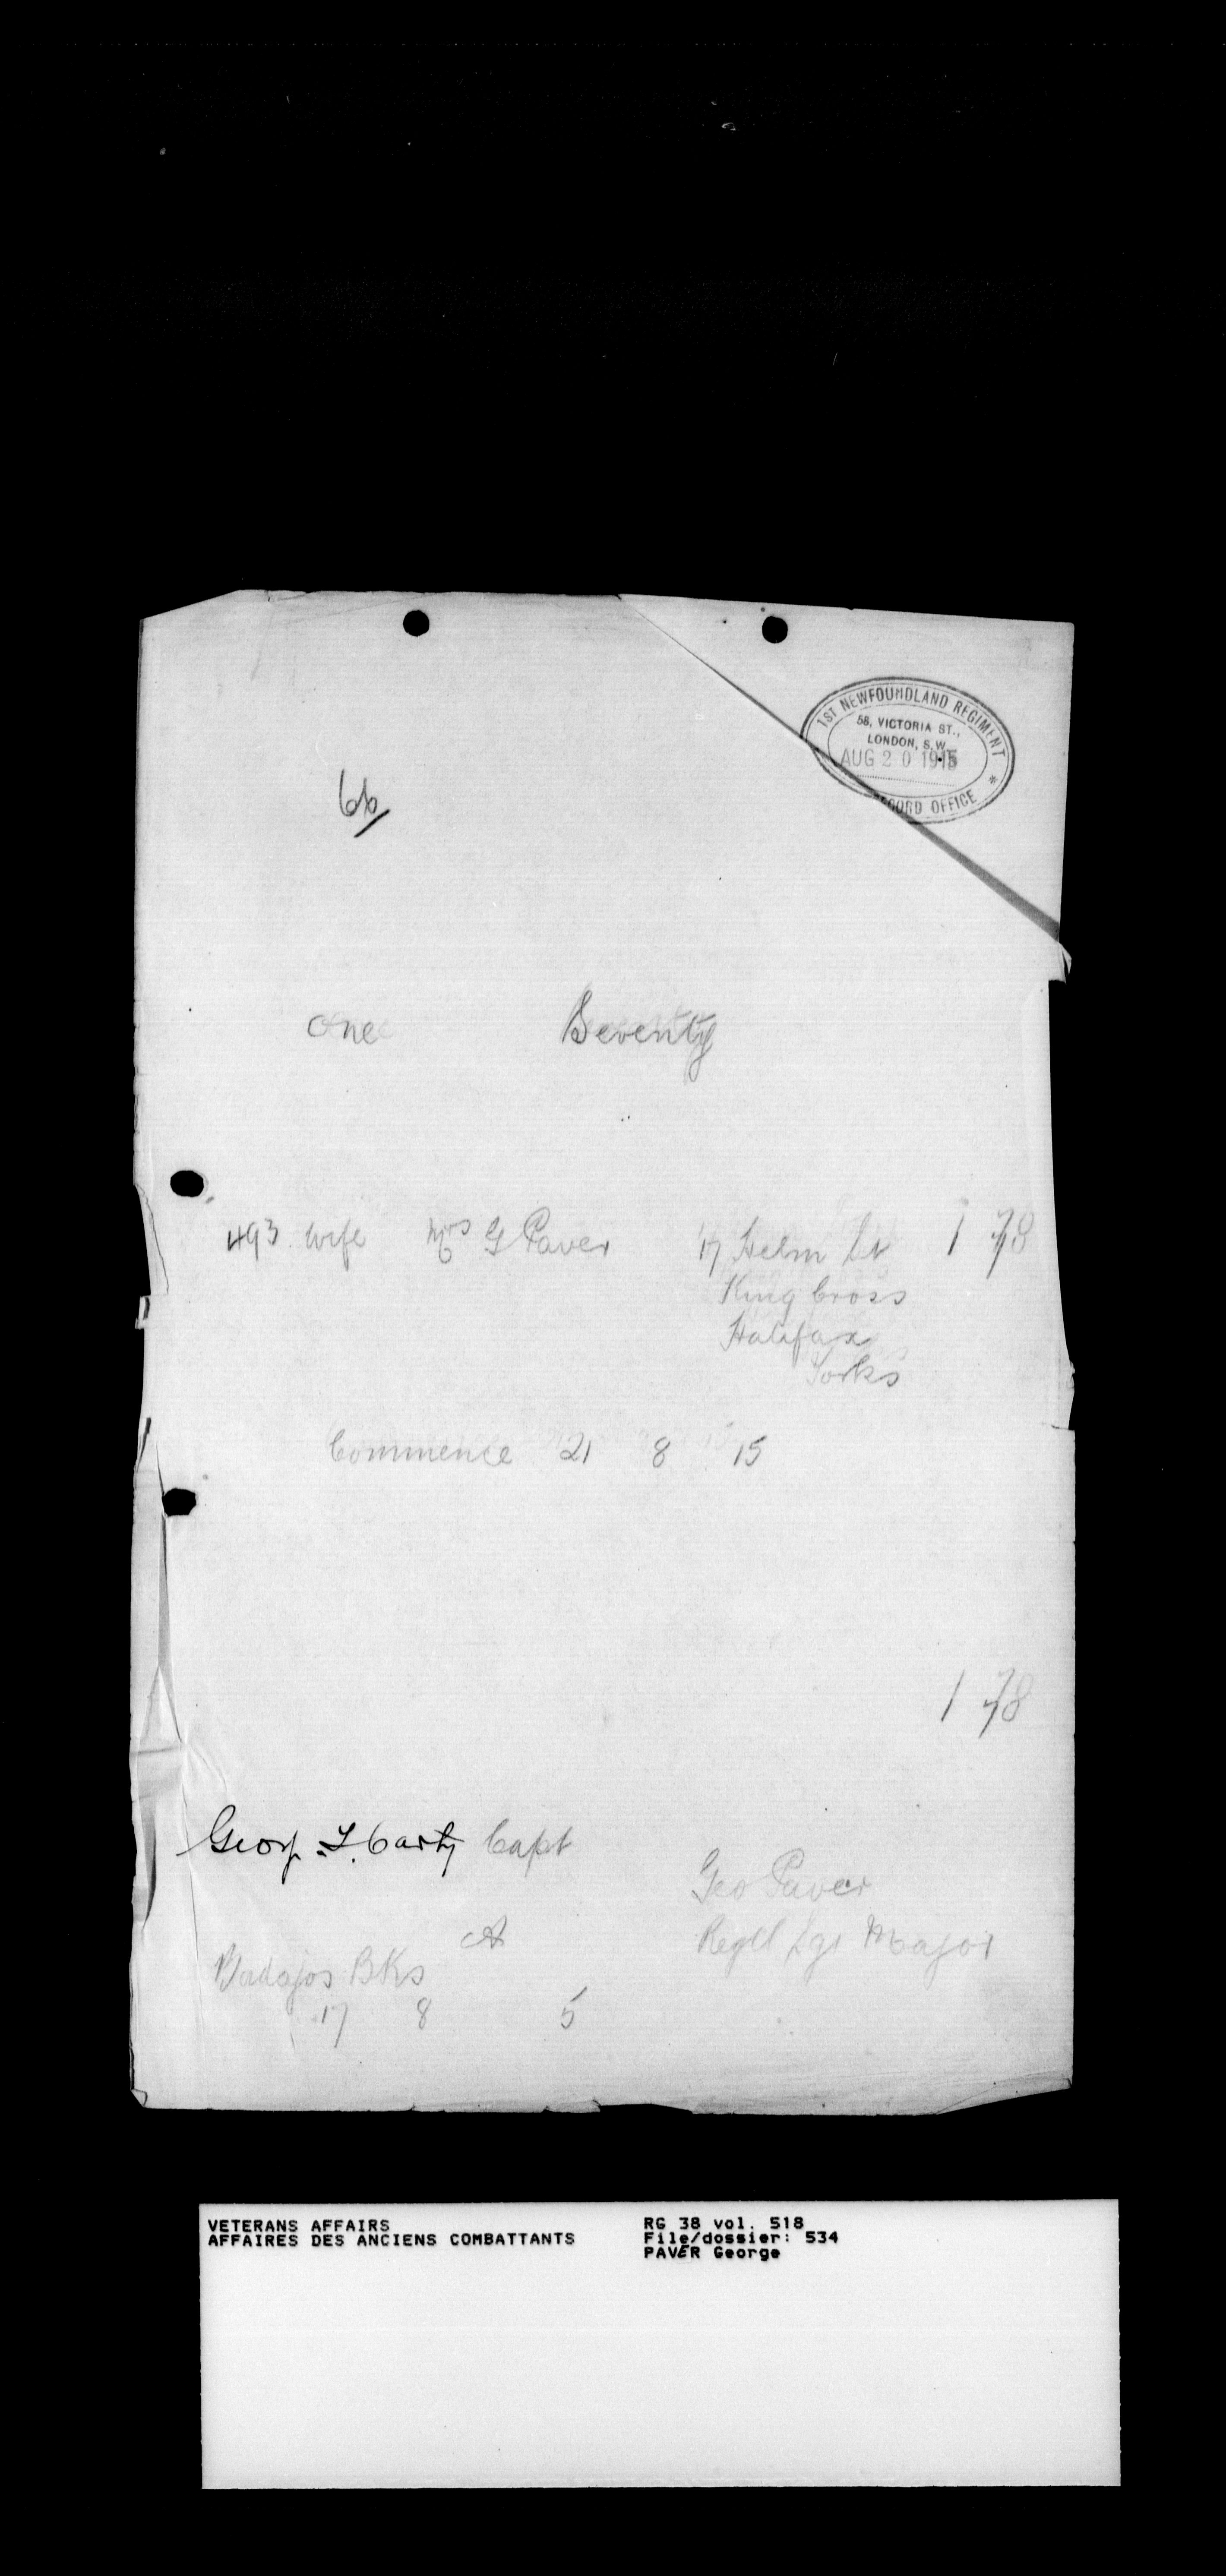 1ST NEWFOUNDLAND REGIMENT
58, VICTORIA ST.,
LONDON, S.W.
AUG 20 1915
RECORD OFFICE *
66
One Seventy
493 wife Mrs G Paver 17 Helm St 1 78
King Cross
Halifax
Yorks
Commence 21 8 15
1 78
Capt
Geo Paver
Regtl Sgt Major
Badajos Bks
17 8 5
VETERANS AFFAIRS
AFFAIRES DES ANCIENS COMBATTANTS
RG 38 vol. 518
File/dossier: 534
PAVER George